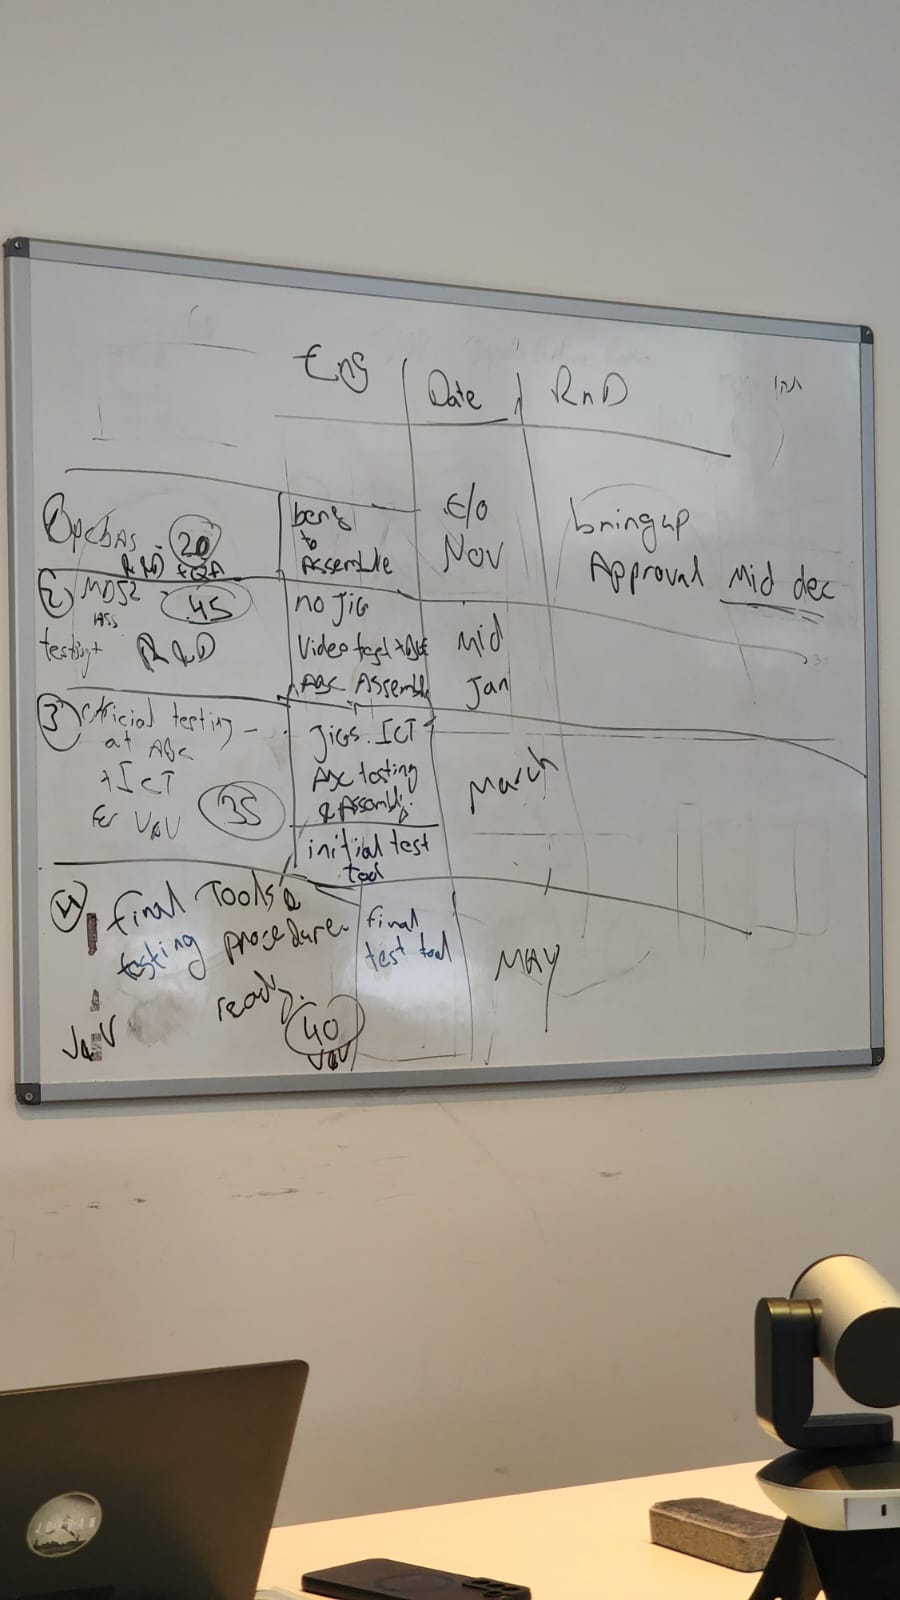 Eng | Date | RnD
① pcbAs 20
RND + QA
to
Assemble
E/o
Nov
bringup
Approval Mid dec
② MD52 45
testing + R&D
no JiG
ABC Assembly
Mid
Jan
③ testing
at ABC
+ ICT
V&V 35
JiGs. ICT
ABC testing
& Assembly.
initial test
tool
March
④ final Tools &
testing procedure.
ready.
40
V&V
V&V
final
test tool
MAY